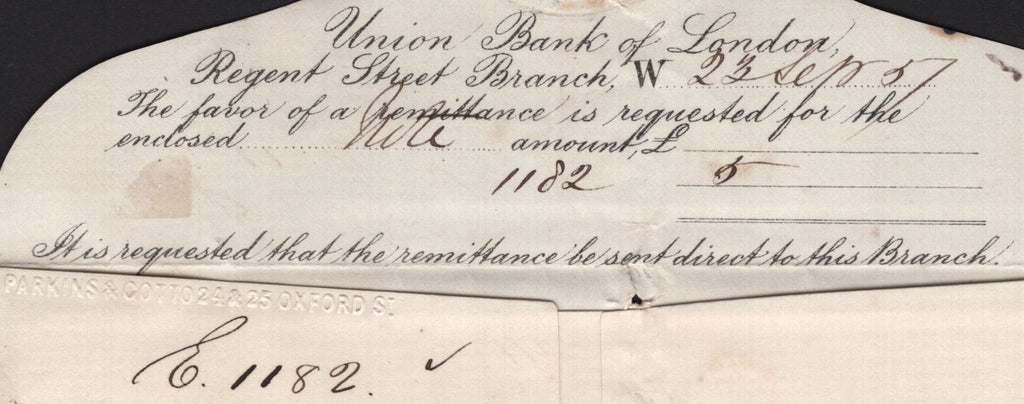 Union Bank of London,
Regent Street Branch, W 23 Sep 57
The favor of a remittance is requested for the
enclosed Note amount, £
1182 5
It is requested that the remittance be sent direct to this Branch.
PARKINS & GOTTO 24 & 25 OXFORD ST.
E. 1182.